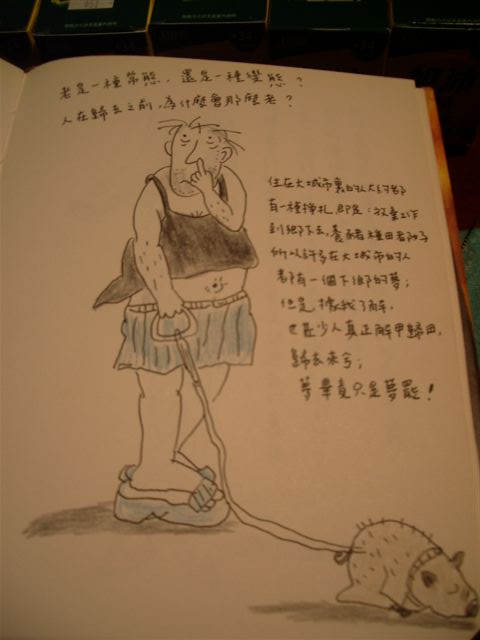 老是一種常態，還是一種變態？
人在歸去之前，為什麼會那麼老？
住在大城市裏的人大約都
有一種掙扎，即是：放棄工作
到鄉下去，養豬種田者
所以許多在大城市的人
都有一個下鄉的夢；
但是，據我了解，
也甚少人真正解甲歸田，
歸去來兮；
夢畢竟只是夢罷！